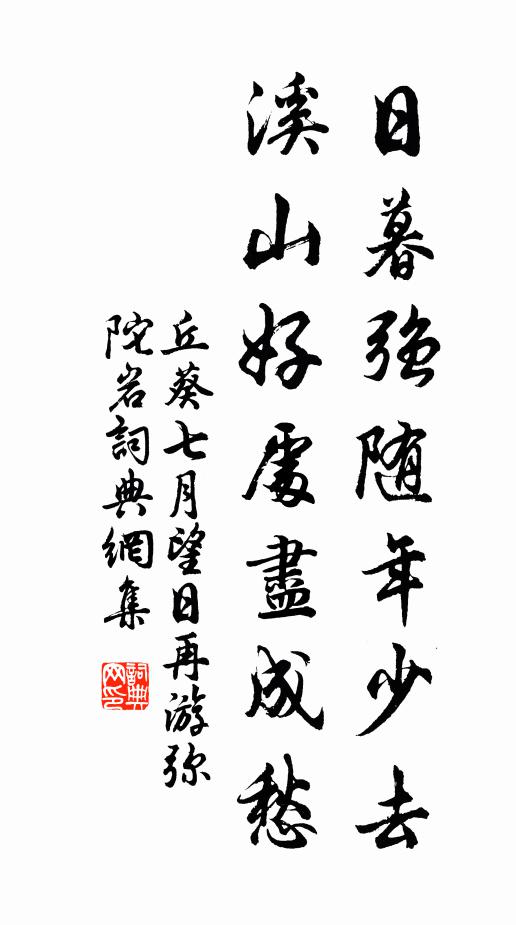 日暮强随年少去
溪山好處盡成愁
丘葵七月望日再游弥
陀岩詞典網集
詞典网印